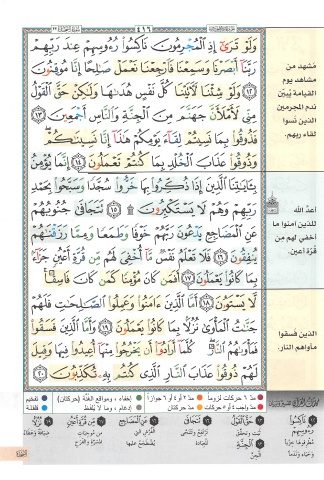 ٤١٦
وَلَوْ تَرَىٰٓ إِذِ ٱلْمُجْرِمُونَ نَاكِسُوا۟ رُءُوسِهِمْ عِندَ رَبِّهِمْ
رَبَّنَآ أَبْصَرْنَا وَسَمِعْنَا فَٱرْجِعْنَا نَعْمَلْ صَٰلِحًا إِنَّا مُوقِنُونَ
١٢ وَلَوْ شِئْنَا لَءَاتَيْنَا كُلَّ نَفْسٍ هُدَىٰهَا وَلَٰكِنْ حَقَّ ٱلْقَوْلُ
مِنِّى لَأَمْلَأَنَّ جَهَنَّمَ مِنَ ٱلْجِنَّةِ وَٱلنَّاسِ أَجْمَعِينَ ١٣
فَذُوقُوا۟ بِمَا نَسِيتُمْ لِقَآءَ يَوْمِكُمْ هَٰذَآ إِنَّا نَسِينَٰكُمْ
وَذُوقُوا۟ عَذَابَ ٱلْخُلْدِ بِمَا كُنتُمْ تَعْمَلُونَ ١٤ إِنَّمَا يُؤْمِنُ
بِـَٔايَٰتِنَا ٱلَّذِينَ إِذَا ذُكِّرُوا۟ بِهَا خَرُّوا۟ سُجَّدًا وَسَبَّحُوا۟ بِحَمْدِ
رَبِّهِمْ وَهُمْ لَا يَسْتَكْبِرُونَ ١٥ تَتَجَافَىٰ جُنُوبُهُمْ
عَنِ ٱلْمَضَاجِعِ يَدْعُونَ رَبَّهُمْ خَوْفًا وَطَمَعًا وَمِمَّا رَزَقْنَٰهُمْ
يُنفِقُونَ ١٦ فَلَا تَعْلَمُ نَفْسٌ مَّآ أُخْفِىَ لَهُم مِّن قُرَّةِ أَعْيُنٍ جَزَآءًۢ
بِمَا كَانُوا۟ يَعْمَلُونَ ١٧ أَفَمَن كَانَ مُؤْمِنًا كَمَن كَانَ فَاسِقًا
لَّا يَسْتَوُۥنَ ١٨ أَمَّا ٱلَّذِينَ ءَامَنُوا۟ وَعَمِلُوا۟ ٱلصَّٰلِحَٰتِ فَلَهُمْ
جَنَّٰتُ ٱلْمَأْوَىٰ نُزُلًۢا بِمَا كَانُوا۟ يَعْمَلُونَ ١٩ وَأَمَّا ٱلَّذِينَ فَسَقُوا۟
فَمَأْوَىٰهُمُ ٱلنَّارُ كُلَّمَآ أَرَادُوٓا۟ أَن يَخْرُجُوا۟ مِنْهَآ أُعِيدُوا۟ فِيهَا وَقِيلَ
لَهُمْ ذُوقُوا۟ عَذَابَ ٱلنَّارِ ٱلَّذِى كُنتُم بِهِۦ تُكَذِّبُونَ ٢٠
مشهد من
مشاهد يوم
القيامة يُبيّن
ندم المجرمين
الذين نسوا
لقاء ربهم.
أعدّ الله
للذين آمنوا ما
أخفي لهم من
قرّة أعين.
الذين فسقوا
مأواهم النار.
مدّ ٦ حركات لزوماً
مدّ ٢ أو ٤ أو ٦ جوازاً
إخفاء، ومواقع الغُنّة (حركتان)
تفخيم
مدّ واجب ٤ أو ٥ حركات
مدّ حركتان
إدغام، وما لا يُلفظ
قلقلة